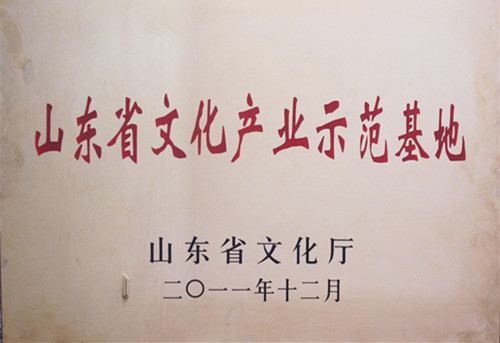 山东省文化产业示范基地
山东省文化厅
二〇一一年十二月